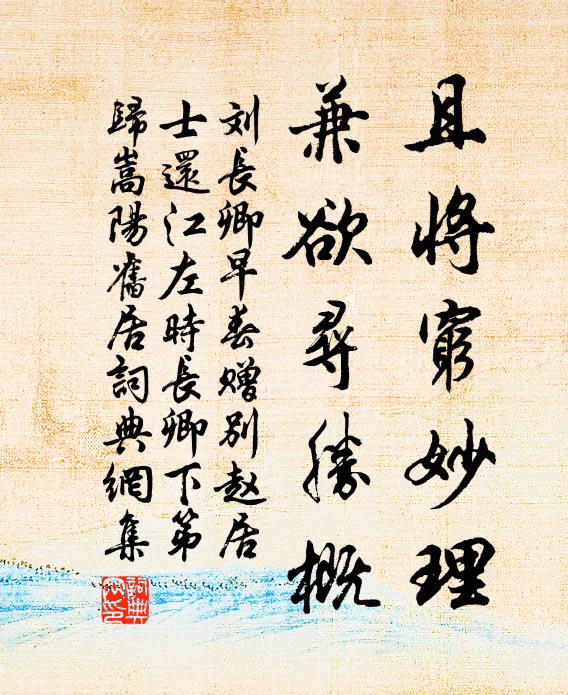 且将窮妙理
兼欲尋勝概
刘長卿早春赠别赵居
士還江左時長卿下第
歸嵩陽舊居詞典網集